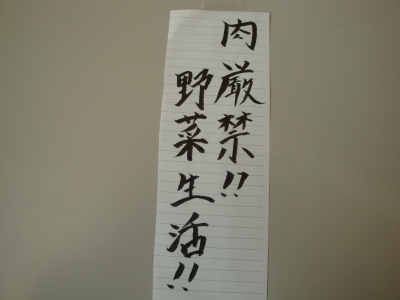 肉厳禁!!
野菜生活!!